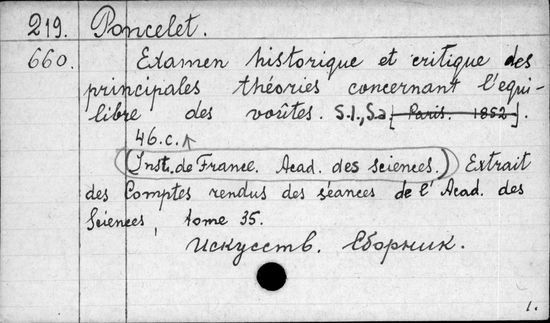 219. Poncelet.
660. Examen historique et critique des
principales théories concernant l'equi-
libre des voûtes. S.l., S.a. [Paris. 1852].
46.c.
(Inst. de France. Acad. des sciences.) Extrait
des Comptes rendus des séances de l'Acad. des
Sciences, tome 35.
Искусств. Сборник.
1.